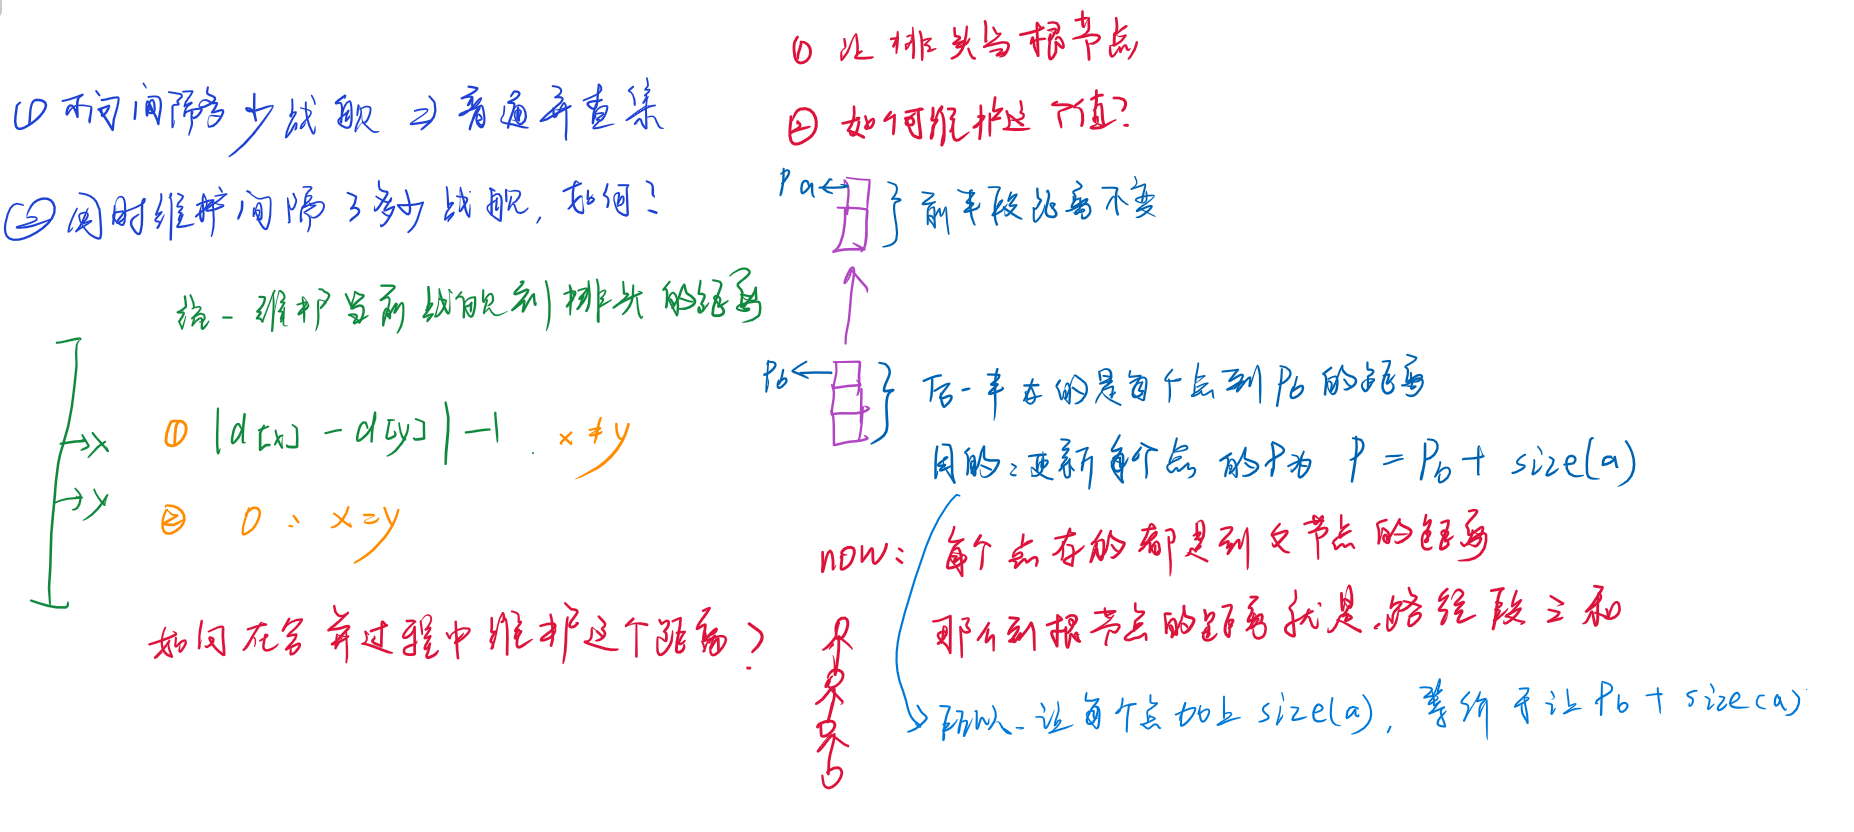 ① 不问间隔多少战舰 => 普通并查集
② 同时维护间隔了多少战舰, 如何?
统一维护当前战舰到排头的距离
→x
① |d[x] - d[y]| - 1 x ≠ y
→y
② 0 : x = y
如何在合并过程中维护这个距离?
① 让排头当根节点
② 如何维护这个值?
Pa← } 前半段距离不变
Pb← } 后一半存的是每个点到Pb的距离
目的:更新每个点的P为 P = Pb + size(a)
now: 每个点存的都是到父节点的距离
那么到根节点的距离就是.路径段之和
所以-让每个点加上size(a), 等价于让Pb + size(a)